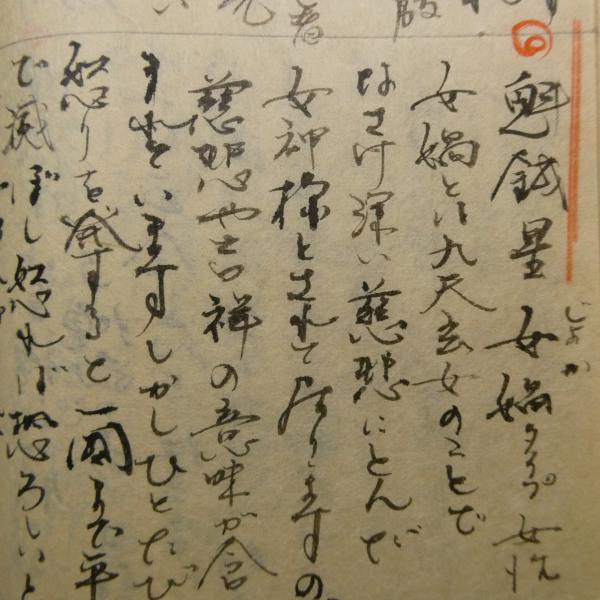 魁鉞星 女媧タイプ 女性
じょか
女媧とは九天玄女のことで
なさけ深い慈悲にとんだ
女神様とされて居りますの
慈悲や吉祥の意味が含
まれていますしかしひとたび
怒りを発すると一国まで平
で滅ぼし怒れば恐ろしいと